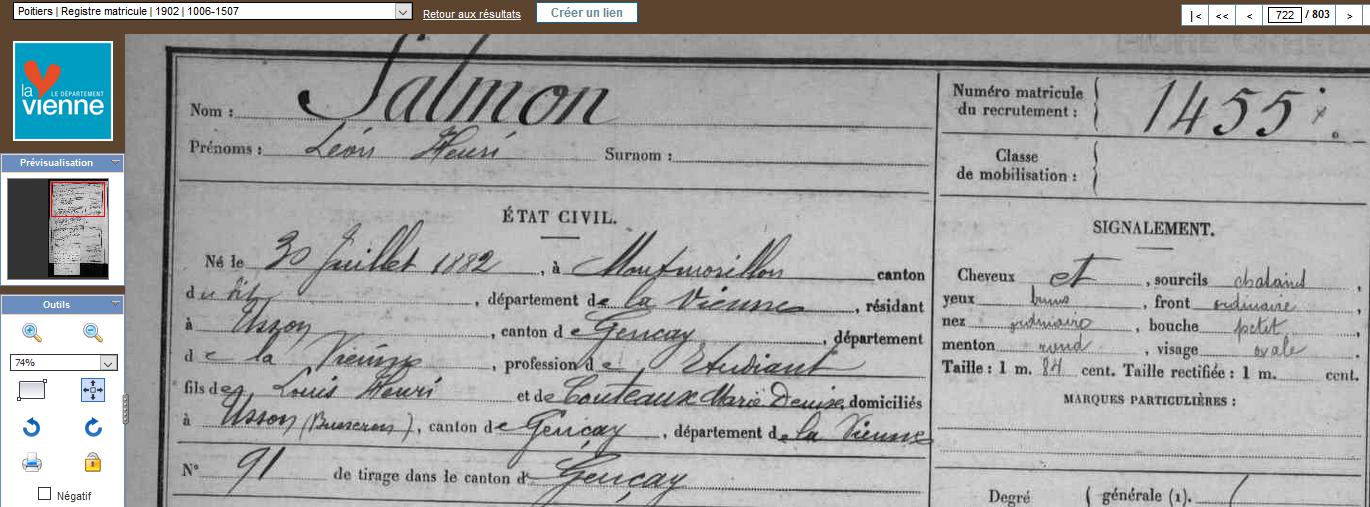 Poitiers | Registre matricule | 1902 | 1006-1507
Retour aux résultats
Créer un lien
|<
<<
<
722 / 803
>
la vienne
LE DÉPARTEMENT
Prévisualisation
Outils
74%
Négatif
Nom : Salmon
Prénoms : Léon Henri Surnom :
ÉTAT CIVIL.
Né le 30 Juillet 1882, à Montmorillon canton
du dit, département de la Vienne, résidant
à Usson, canton de Gençay, département
de la Vienne, profession d'Etudiant
fils de Louis Henri et de Couteaux Marie Denise, domiciliés
à Usson (Busserou), canton de Gençay, département de la Vienne
N° 91 de tirage dans le canton de Gençay
Numéro matricule
du recrutement : 1455
Classe
de mobilisation :
SIGNALEMENT.
Cheveux et, sourcils chatains,
yeux bruns, front ordinaire,
nez ordinaire, bouche petit,
menton rond, visage ovale.
Taille : 1 m. 84 cent. Taille rectifiée : 1 m. cent.
MARQUES PARTICULIÈRES :
Degré { générale (1).